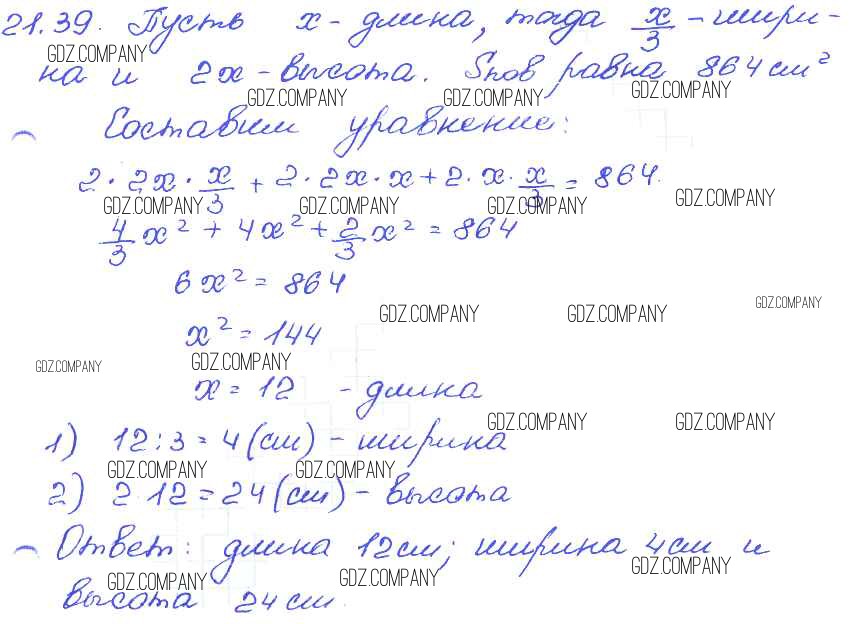 21.39. Пусть x - длина, тогда x/3 - шири-
GDZ.COMPANY
на и 2x - высота. Sпов равна 864 см²
GDZ.COMPANY GDZ.COMPANY GDZ.COMPANY
Составим уравнение:
2·2x·x/3 + 2·2x·x + 2·x·x/3 = 864.
GDZ.COMPANY GDZ.COMPANY GDZ.COMPANY GDZ.COMPANY
4/3 x² + 4x² + 2/3 x² = 864
6x² = 864
GDZ.COMPANY GDZ.COMPANY GDZ.COMPANY
x² = 144
GDZ.COMPANY GDZ.COMPANY
x = 12 - длина
GDZ.COMPANY GDZ.COMPANY
1) 12:3 = 4 (см) - ширина
GDZ.COMPANY GDZ.COMPANY
2) 2 12 = 24 (см) - высота
Ответ: длина 12 см; ширина 4 см и
GDZ.COMPANY GDZ.COMPANY GDZ.COMPANY
высота 24 см.